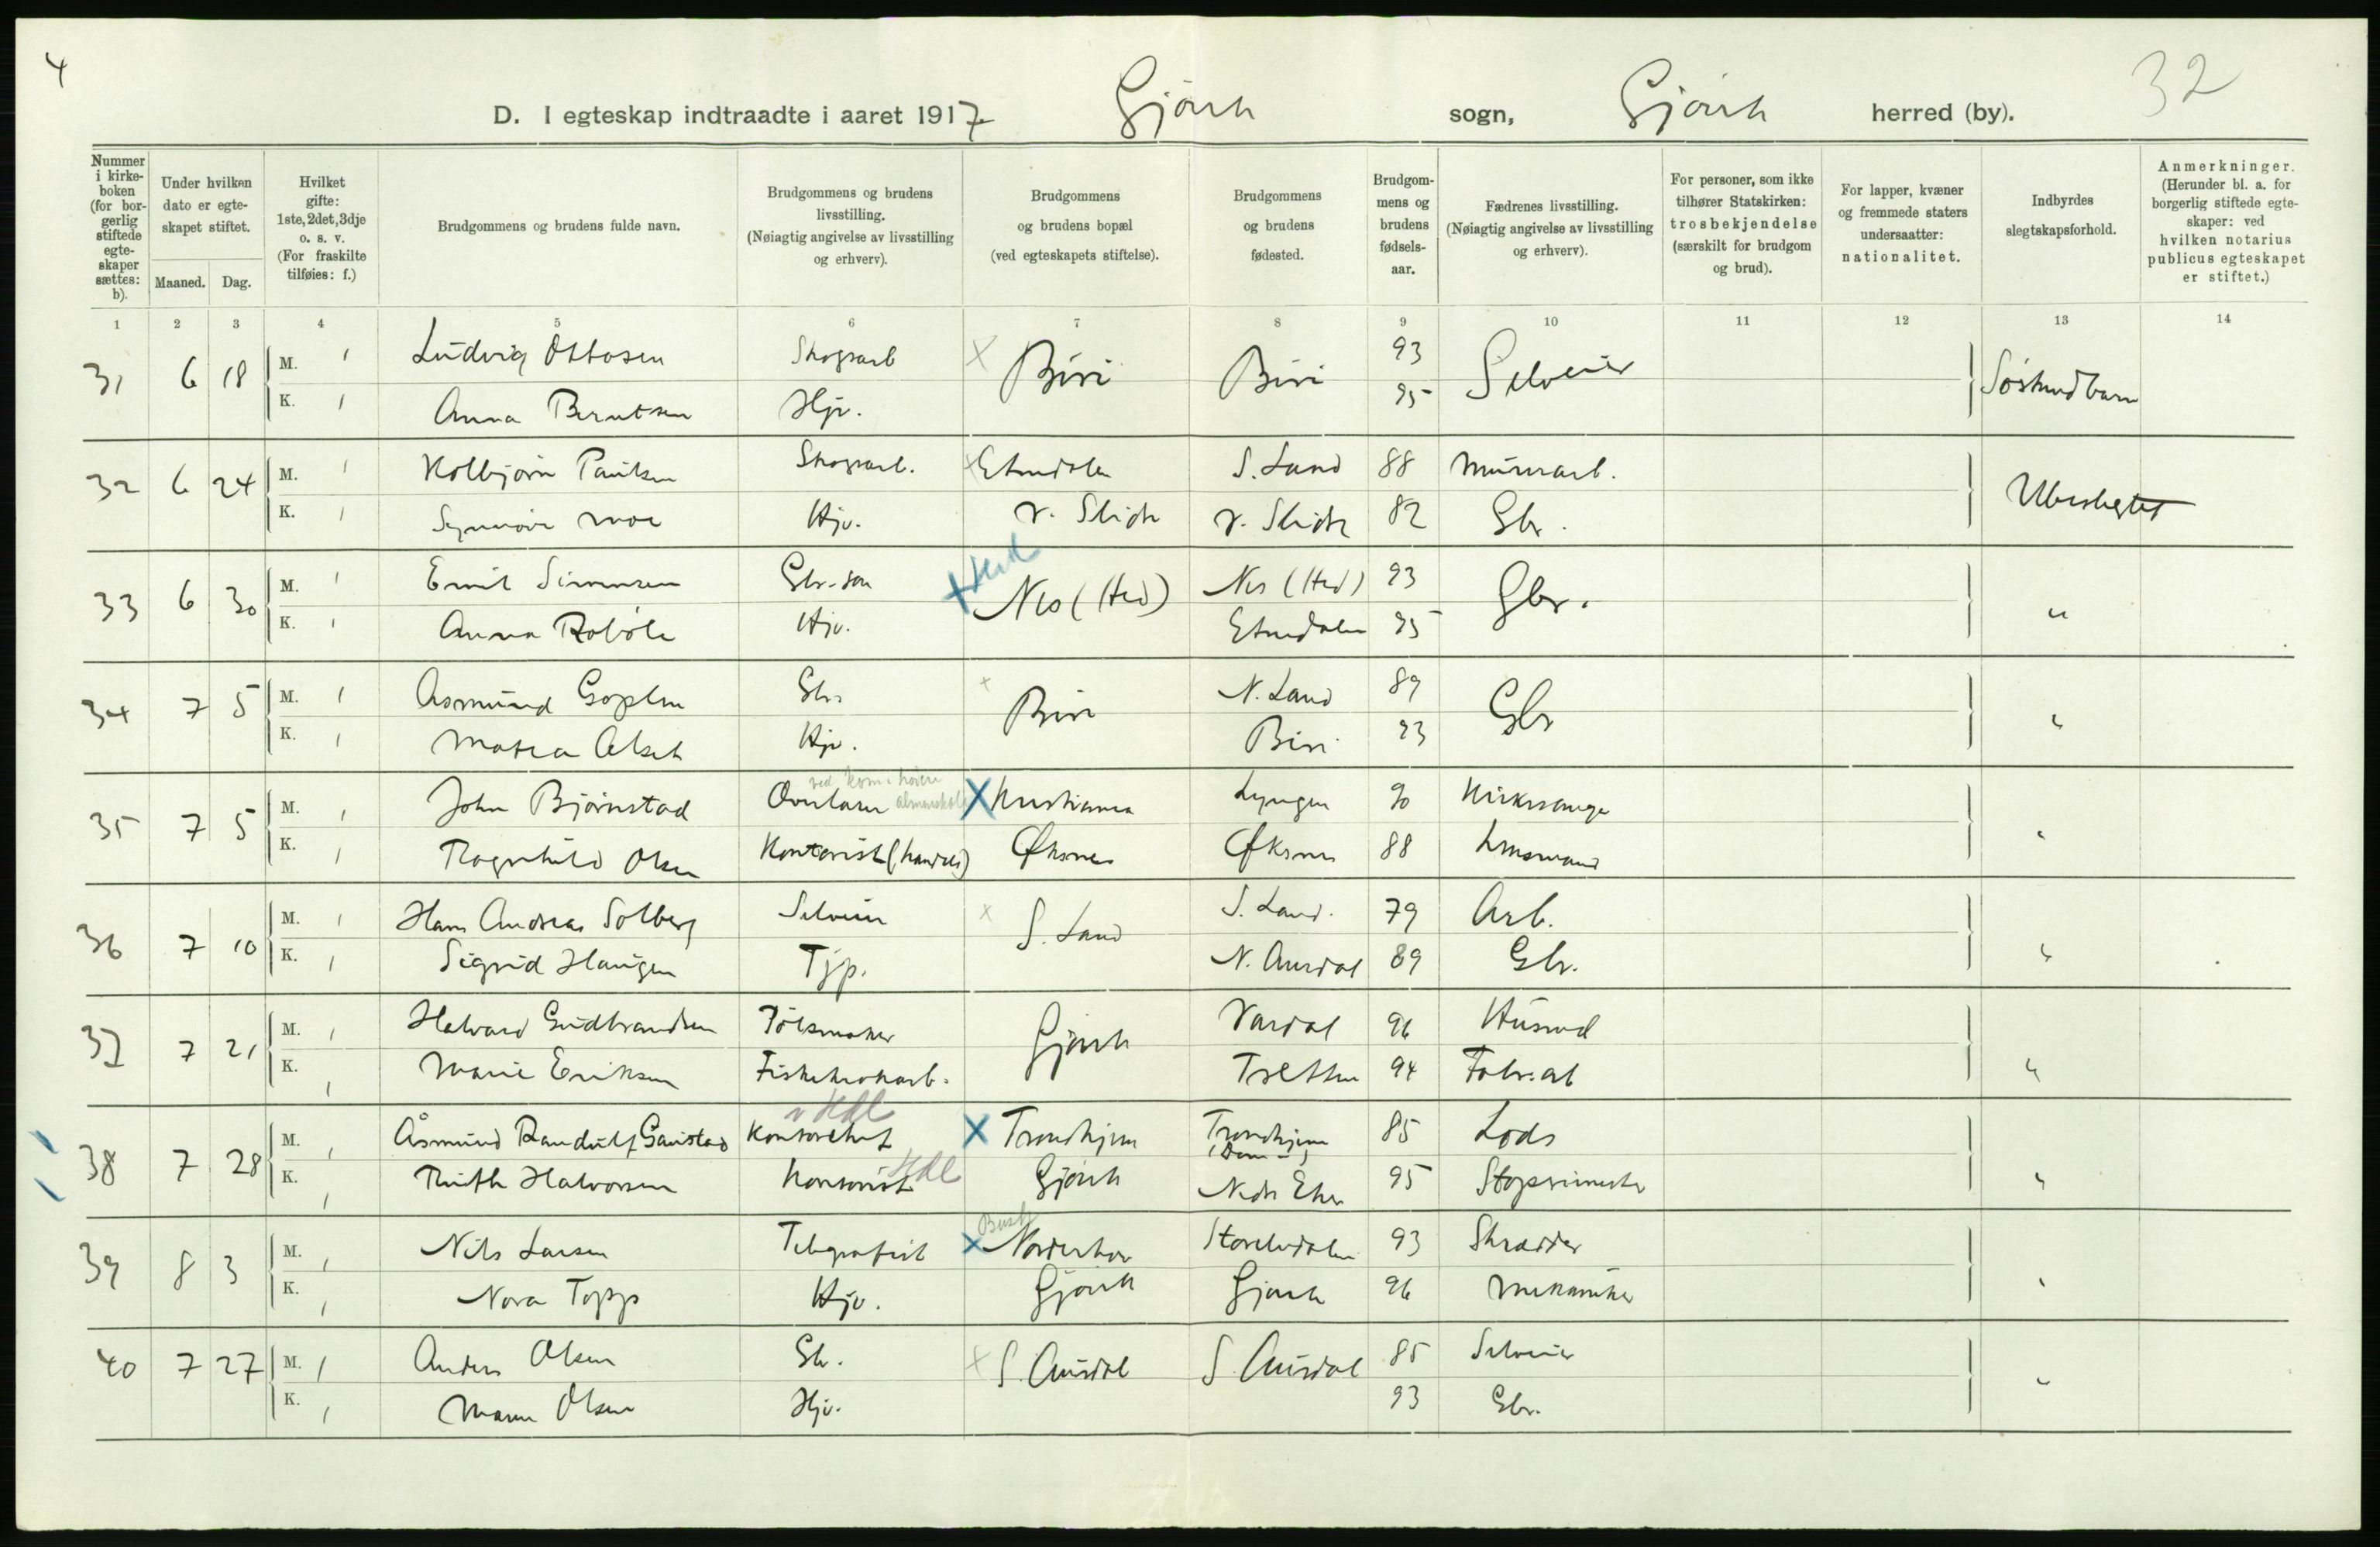 4
32
D. I egteskap indtraadte i aaret 1917 Gjøvik sogn, Gjøvik herred (by).
Nummer i kirke-boken (for bor-gerlig stiftede egte-skaper sættes: b).
Under hvilken dato er egte-skapet stiftet.
Maaned. Dag.
Hvilket gifte: 1ste, 2det, 3dje o. s. v. (For fraskilte tilføies: f.)
Brudgommens og brudens fulde navn.
Brudgommens og brudens livsstilling. (Nøiagtig angivelse av livsstilling og erhverv).
Brudgommens og brudens bopæl (ved egteskapets stiftelse).
Brudgommens og brudens fødested.
Brudgom-mens og brudens fødsels-aar.
Fædrenes livsstilling. (Nøiagtig angivelse av livsstilling og erhverv).
For personer, som ikke tilhører Statskirken: trosbekjendelse (særskilt for brudgom og brud).
For lapper, kvæner og fremmede staters undersaatter: nationalitet.
Indbyrdes slegtskapsforhold.
Anmerkninger. (Herunder bl. a. for borgerlig stiftede egte-skaper: ved hvilken notarius publicus egteskapet er stiftet.)
1 2 3 4 5 6 7 8 9 10 11 12 13 14
31 6 18 M. 1 Ludvig Ottosen Skogsarb x Biri Biri 93 Selveier Søskendbarn
K. 1 Anna Berntsen Hjv. 95
32 6 24 M. 1 Kolbjørn Paulsen Skogsarb. x Etnedalen S. Land 88 Murerarb. Ubeslegtet
K. 1 Synnøve Moe Hjv. V. Slidre V. Slidre 82 Gbr.
33 6 30 M. 1 Emil Simensen Gbr. søn x Hed Nes (Hed) Nes (Hed) 93 Gbr. "
K. 1 Anna Robøle Hjv. Etnedalen 95
34 7 5 M. 1 Asmund Goplen Gbr x Biri N. Land 89 Gbr "
K. 1 Matea Alset Hjv. Biri 93
35 7 5 M. 1 John Bjørnstad Overlærer ved kom. høiere almenskole X Kristiania Lyngen 90 Kirkesanger "
K. 1 Ragnhild Olsen Kontorist (handels) Øksnes Øksnes 88 Lensmand
36 7 10 M. 1 Hans Andreas Solberg Selveier x S. Land S. Land. 79 Arb. "
K. 1 Sigrid Haugen Tjp. N. Aurdal 89 Gbr.
37 7 21 M. 1 Halvard Gudbrandsen Pølsemaker Gjøvik Vardal 96 Husmd "
K. 1 Marie Eriksen Fiskekrokarb. Tretten 94 Fabr. arb
38 7 28 M. 1 Åsmund Randulf Gaustad Kontorchef v Hdl X Trondhjem Trondhjem (Dom-) 85 Lods "
K. 1 Ruth Halvorsen Kontorist Hdl Gjøvik Nedr Eker 95
39 8 3 M. 1 Nils Larsen Telegrafist Busk x Norderhov Storelvdalen 93 Skrædder "
K. 1 Nora Topp Hjv. Gjøvik Gjøvik 96 Mekaniker
40 7 27 M. 1 Anders Olsen Gbr. x S. Aurdal S. Aurdal 85 Selveier "
K. 1 Olsen Hjv. 93 Gbr.